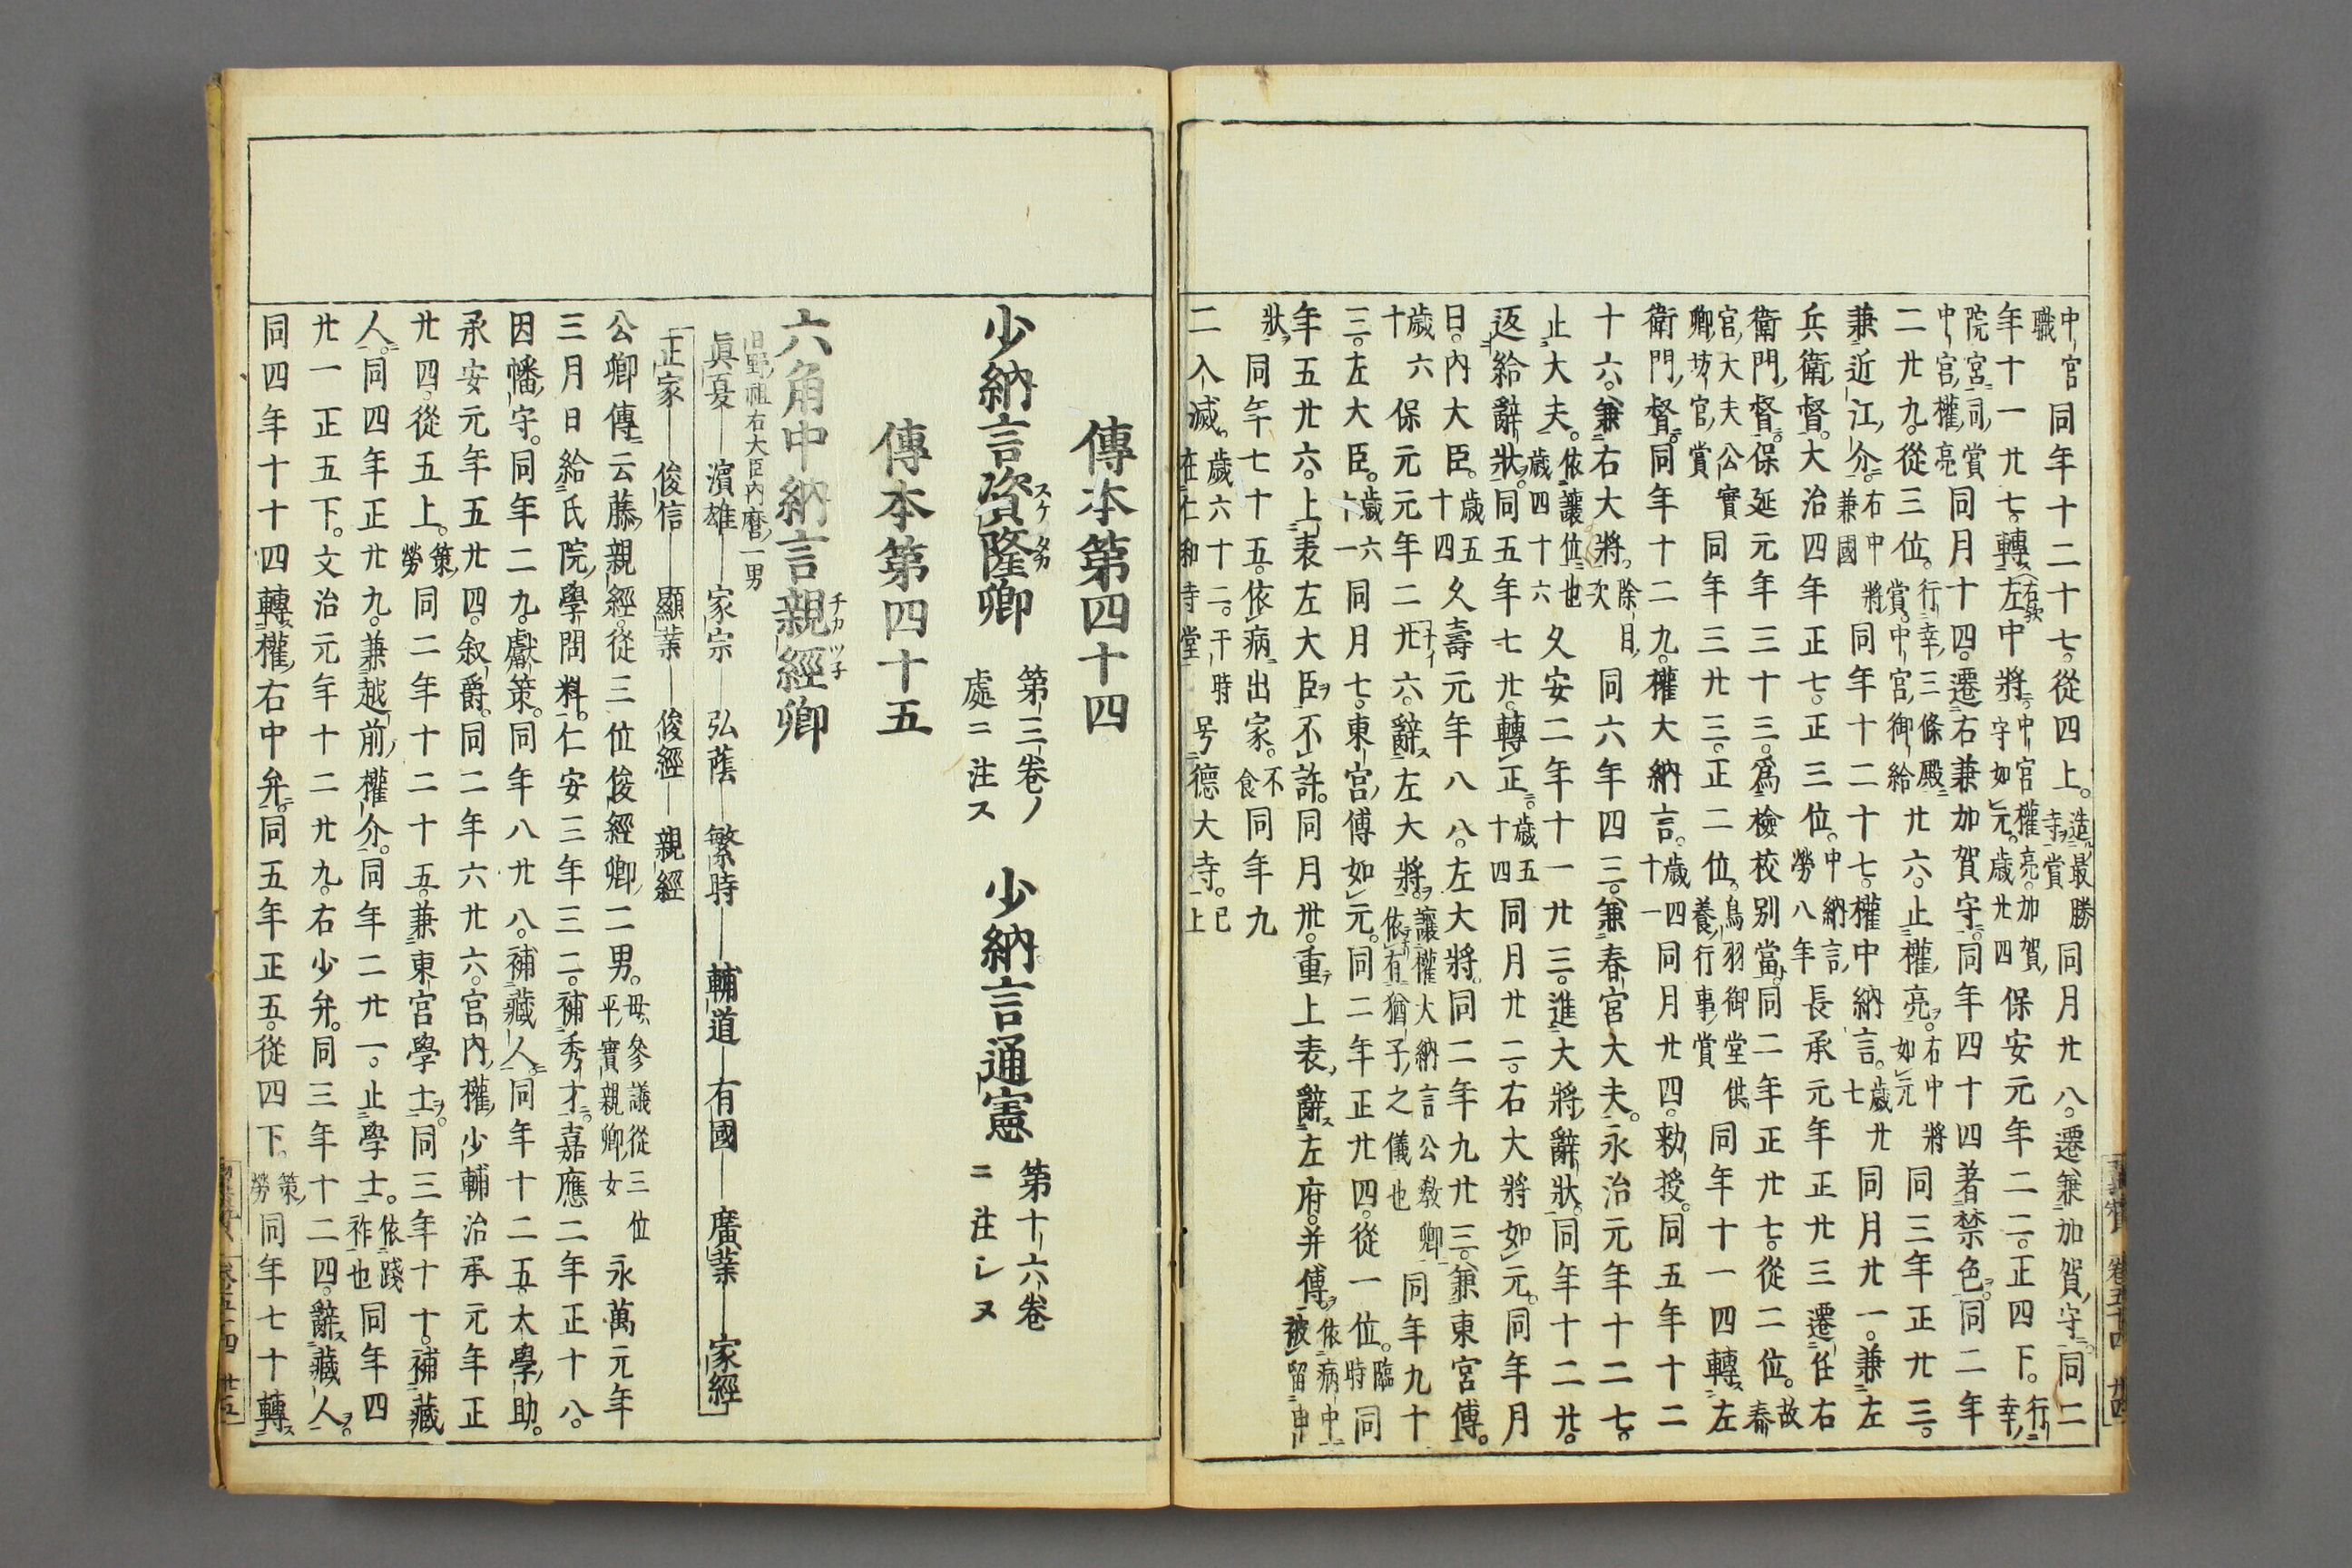 中宮職 同年十二十七。從四上。造最勝寺賞 同月廿八。遷兼加賀守。同二
年十一廿七。轉左(右歟)中將。中宮權亮。加賀守如元。歳廿四 保安元年二二。正四下。行幸
院宮同賞中宮權亮 同月十四。遷右兼加賀守。同年四十四著禁色。同二年
二廿九。從三位。行幸三條殿賞。中宮御給 廿六。止權亮。右中將如元 同三年正廿三。
兼近江介。右中將兼國 同年十二十七。權中納言。歳廿七 同月廿一。兼左
兵衛督。大治四年正七。正三位。中納言勞八年 長承元年正廿三遷任右
衛門督。保延元年三十三。爲檢校別當。同二年正廿七。從二位。故春
宮大夫公實卿坊官賞 同年三廿三。正二位。鳥羽御堂供養行事賞 同年十一四轉左
衛門督。同年十二九。權大納言。歳四十一 同月廿四。勅授。同五年十二
十六。兼右大將。除目次 同六年四三。兼春宮大夫。永治元年十二七。
止大夫。依讓位也歳四十六 久安二年十一廿三。進大將辭狀。同年十二廿。
返給辭狀。同五年七廿。轉正。歳五十四 同月廿二。右大將如元。同年月
日。内大臣。歳五十四 久壽元年八八。左大將。同二年九廿三。兼東宮傅。
歳六十 保元元年二廿六。辭左大將。讓權大納言公教卿依有猶子之儀也 同年九十
三。左大臣。歳六十一 同月七。東宮傅如元。同二年正廿四。從一位。臨時 同
年五廿六。上表左大臣不許。同月卅。重上表辭左府。并傅。依病中被留申
狀 同年七十五。依病出家。不食 同年九
二入滅。歳六十二。于時在仁和寺堂 号德大寺。已上
傳本第四十四
少納言資隆卿 第三卷ノ處ニ注ス 少納言通憲 第十六卷ニ注レヌ
傳本第四十五
六角中納言親經卿
日野祖右大臣内麿一男
眞夏―濱雄―家宗―弘蔭―繁時―輔道―有國―廣業―家經
正家―俊信―顯業―俊經―親經
公卿傳云藤親經。從三位俊經卿二男。母參議從三位平實親卿女 永萬元年
三月日給氏院學問料。仁安三年三二。補秀才。嘉應二年正十八。
因幡守。同年二九。獻策。同年八廿八。補藏人。同年十二五。大學助。
承安元年五廿四。叙爵。同二年六廿六。宮内權少輔治承元年正
廿四。從五上。策勞 同二年十二十五。兼東宮學士。同三年十十。補藏
人。同四年正廿九。兼越前權介。同年二廿一。止學士。依踐祚也 同年四
廿一正五下。文治元年十二廿九。右少弁。同三年十二四。辭藏人。
同四年十十四轉權右中弁。同五年正五。從四下。策勞 同年七十轉
卷五十四 廿四
卷五十四 廿五